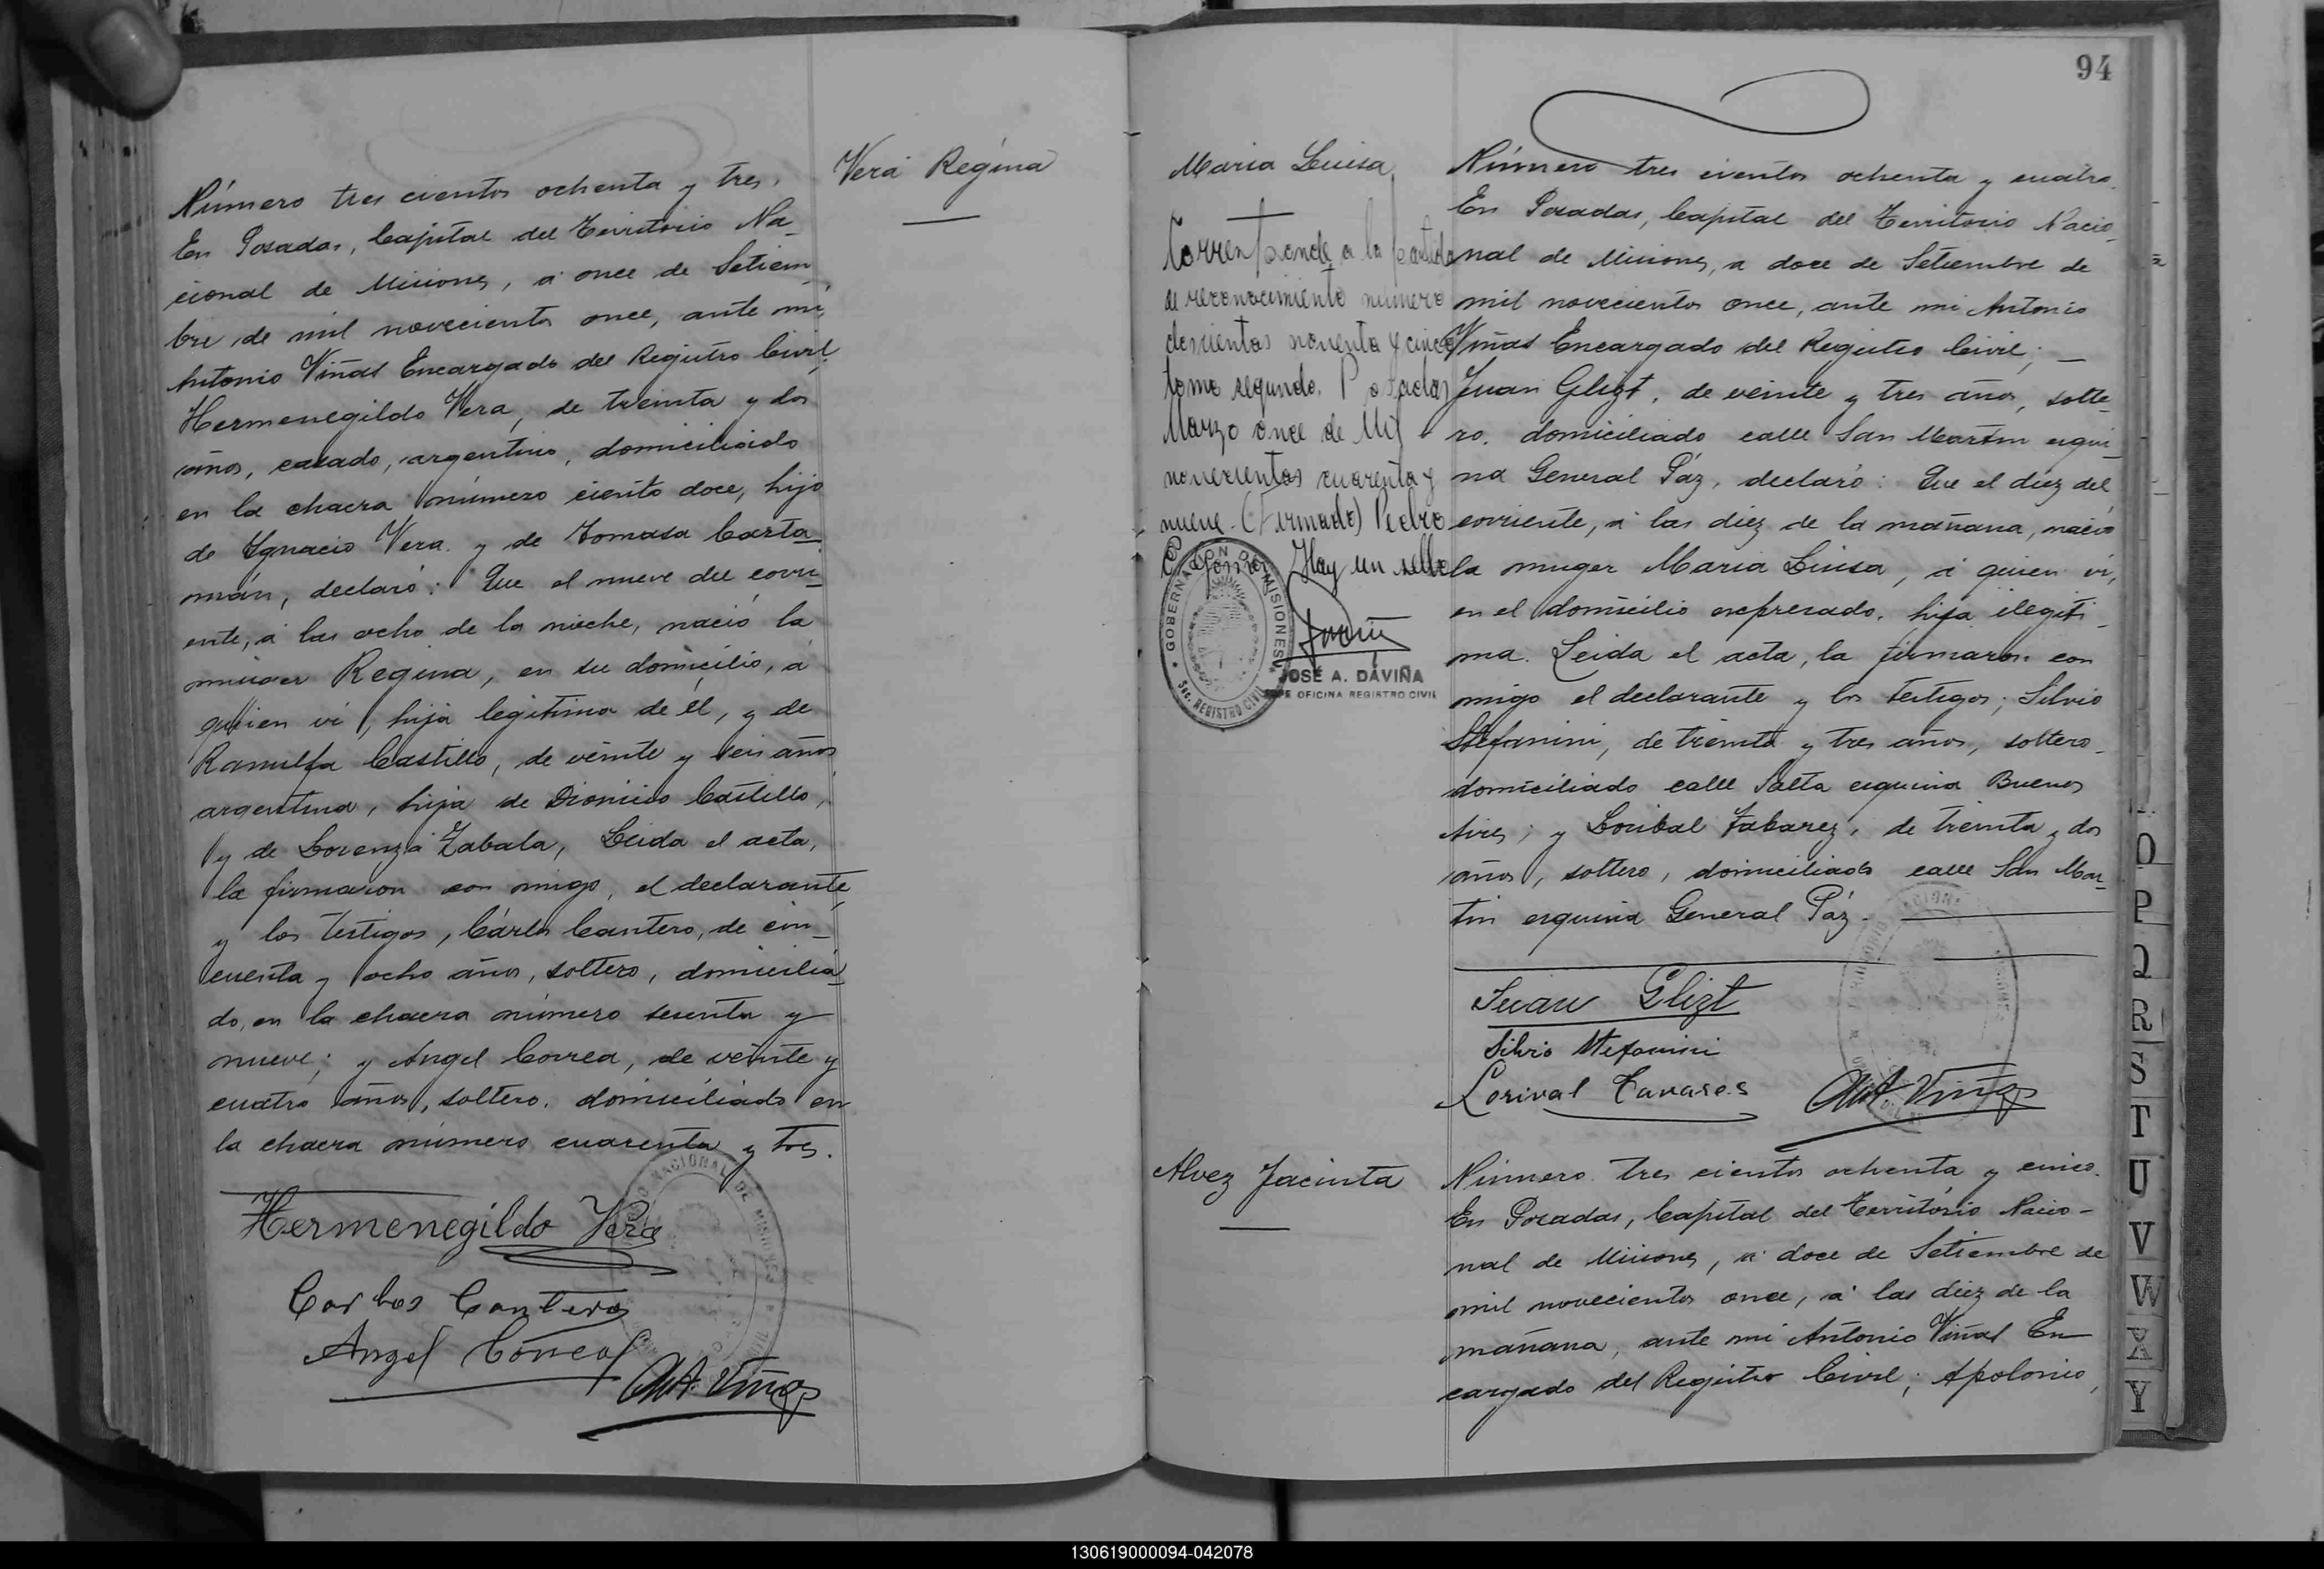 Número tres cientos ochenta y tres.
En Posadas, Capital del Territorio Na-
cional de Misiones, á once de Setiem-
bre de mil novecientos once, ante mi,
Antonio Viñas Encargado del Registro Civil,
Hermenegildo Vera, de treinta y dos
años, casado, argentino, domiciliado
en la chacra número ciento doce, hijo
de Ygnacio Vera y de Tomasa Carta-
mán, declaró: Que el nueve del corri-
ente, á las ocho de la noche, nació la
muger Regina, en su domicilio, á
quien vi, hija legitima de él, y de
Ranulfa Castillo, de veinte y seis años
argentina, hija de Dionicio Castillo,
y de Lorenza Zabala, Leida el acta,
la firmaron con migo, el declarante,
y los testigos, Cárlos Cantero, de cin-
cuenta y ocho años, soltero, domicilia-
do, en la chacra número sesenta y
nueve; y Angel Correa, de veinte y
cuatro años, soltero, domiciliado en
la chacra número cuarenta y tres.
Hermenegildo Vera
Carlos Cantero
Angel Correa
Ant Viñas
Vera Regina
94
Maria Luisa
Corresponde a la partida
de reconocimiento número
doscientos noventa y cinco
tomo segundo. Posadas
Marzo once de Mil
novecientos cuarenta y
nueve. (Firmado) Pedro
Hay un sello
GOBERNACION DE MISIONES
Sec. REGISTRO CIVIL
JOSÉ A. DAVIÑA
JEFE OFICINA REGISTRO CIVIL
Número tres cientos ochenta y cuatro.
En Posadas, Capital del Territorio Nacio-
nal de Misiones, a doce de Setiembre de
mil novecientos once, ante mi Antonio
Viñas Encargado del Registro Civil;
Juan Glizt, de veinte y tres años, solte-
ro, domiciliado calle San Martin esqui-
na General Páz, declaró: Que el diez del
corriente, á las diez de la mañana, nació
la muger Maria Luisa, á quien vi,
en el domicilio expresado, hija ilegiti-
ma. Leida el acta, la firmaron con
migo el declarante y los testigos; Silvio
Stefanini, de treinta y tres años, soltero
domiciliado calle Salta esquina Buenos
Aires; y Loribal Tabarez, de treinta y dos
años, soltero, domiciliado calle San Mar-
tin esquina General Páz.
Juan Glizt
Silvio Stefanini
Lorival Tavares
Ant Viñas
Alvez Jacinta
Número tres cientos ochenta y cinco.
En Posadas, Capital del Territorio Nacio-
nal de Misiones, á doce de Setiembre de
mil novecientos once, á las diez de la
mañana, ante mi Antonio Viñas En-
cargado del Registro Civil; Apolonio,
O
P
Q
R
S
T
U
V
W
X
Y
130619000094-042078